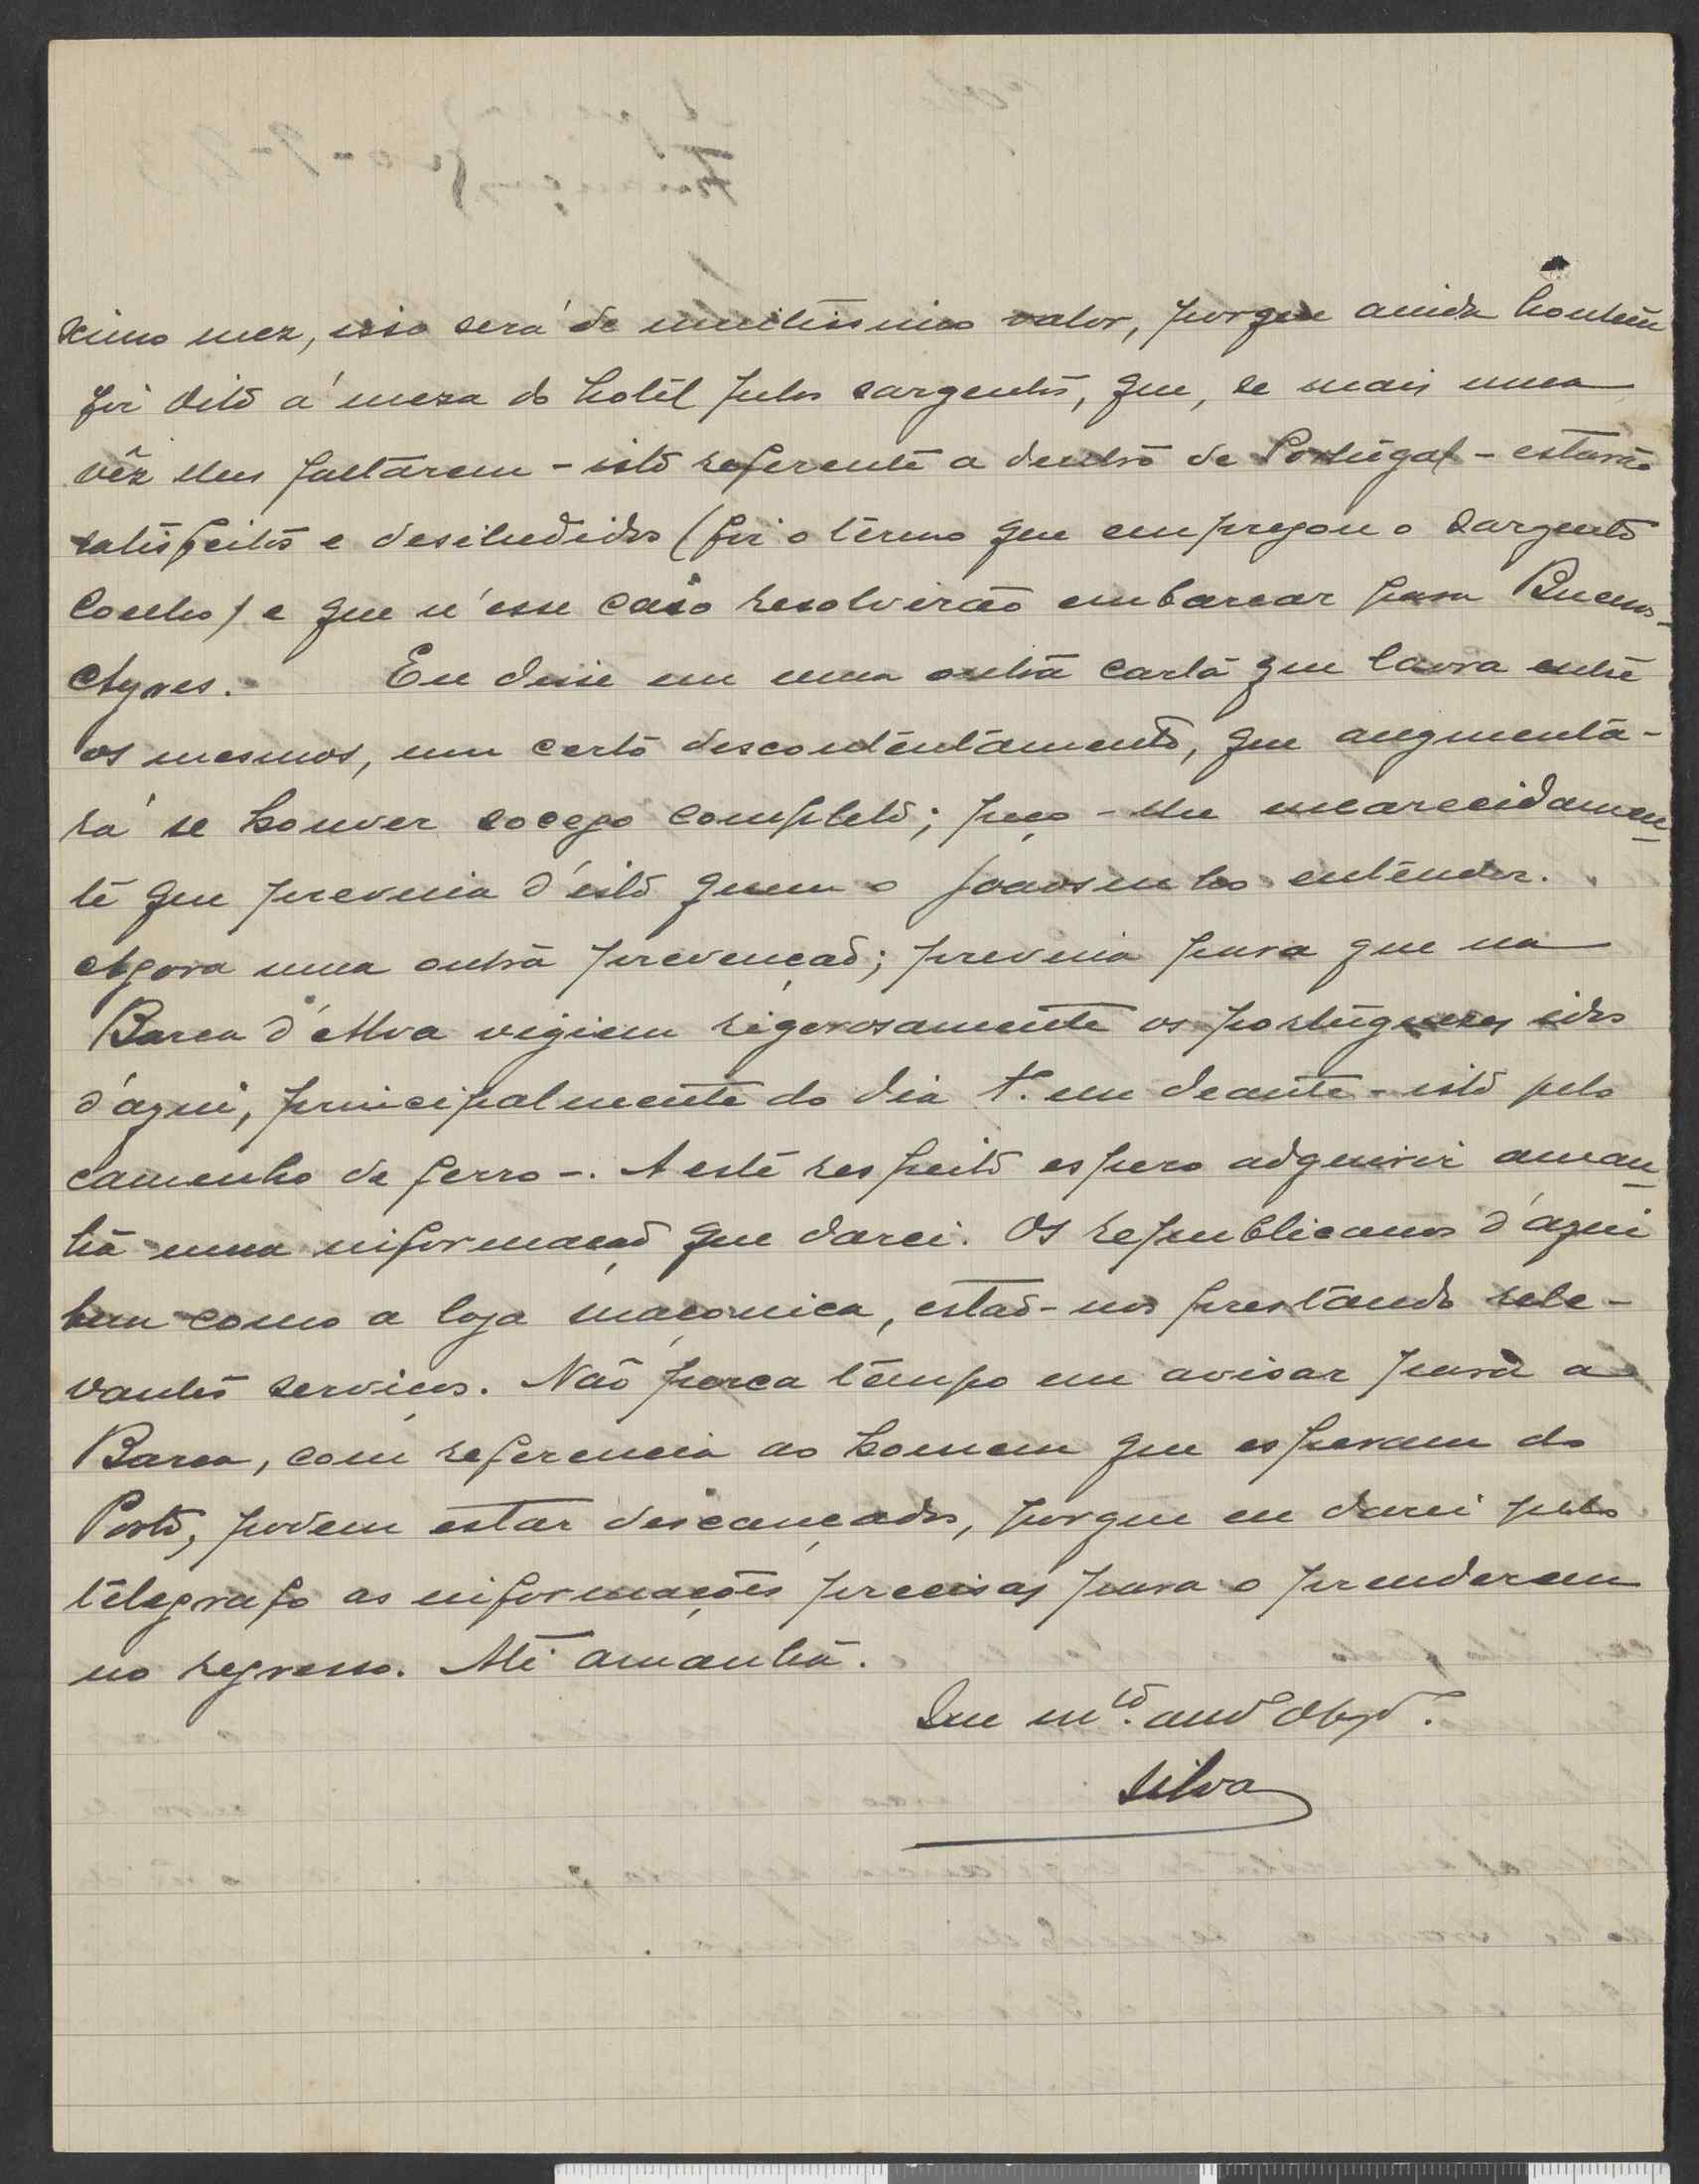 ximo mez, isso será de muitissimo valor, porque ainda hontem
foi dito á meza do hotel pelos sargentos, que, se mais uma
vêz lhes faltarem - isto referente a dentro de Portugal - estarão
satisfeitos e desiludidos (foi o termo que empregou o Sargento
Coelho) e que n'esse caso resolverão embarcar para Buenos-
Ayres. Eu disse em uma outra carta que lavra entre
os mesmos, um certo descontentamento, que augmenta-
rá se houver socego completo; peço-lhe encarecidamen-
te que previna d'isto quem o Joãosinho entender.
Agora uma outra prevenção; previna para que na
Barca d'Alva vigiem rigorosamente os portuguezes idos
d'aqui, principalmente do dia 1º em deante - isto pelo
caminho de ferro -. A este respeito espero adquirir aman-
hã uma informação que darei. Os republicanos d'aqui
bem como a loja maçonica, estão-nos prestando rele-
vantes serviços. Não perca tempo em avisar para a
Barca, com referencia ao homem que esperam do
Porto, podem estar descançados, porque eu darei pelo
telegrafo as informações precisas para o prenderem
no regresso. Até amanhã.
Seu mtº. amº obgdº.
Silva